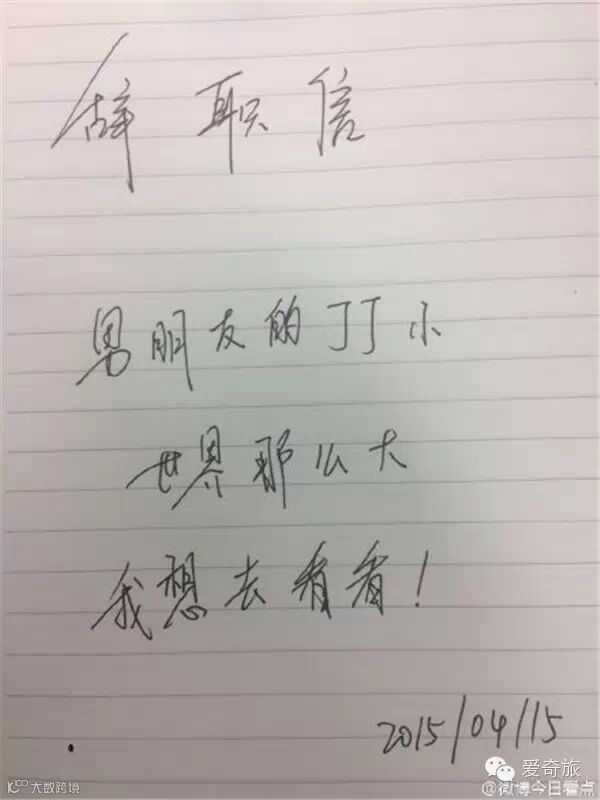 辞职信
男朋友的丁丁小
世界那么大
我想去看看!
2015/04/15
爱奇旅
@微博今日看点
大数跨境